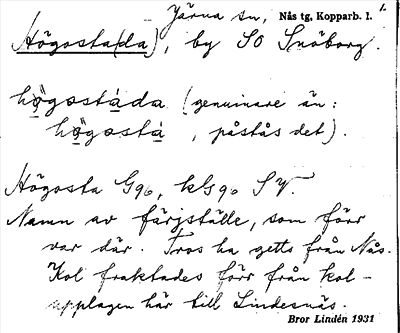 Järna sn, Nås tg, Kopparb. l. 1.
Högosta(da), by SO Snöborg.
högostáda (genuinare än:
högostá, påstås det).
Högosta G96, kls 96 SV.
Namn av färjställe, som förr
var där. Tros ha getts från Nås.
Kol fraktades förr från kol-
upplagen här till Lindesnäs.
Bror Lindén 1931